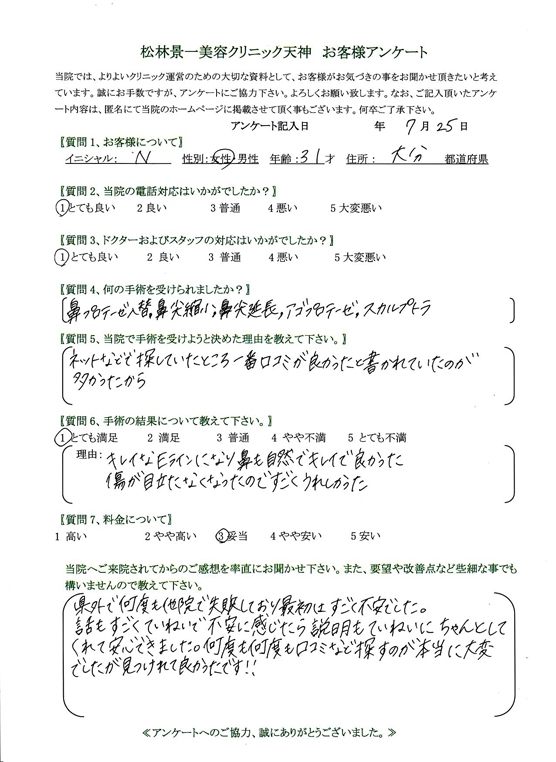 松林景一美容クリニック天神 お客様アンケート
当院では、よりよいクリニック運営のための大切な資料として、お客様がお気づきの事をお聞かせ頂きたいと考え
ています。誠にお手数ですが、アンケートにご協力下さい。よろしくお願い致します。なお、ご記入頂いたアンケ
ート内容は、匿名にて当院のホームページに掲載させて頂く事もございます。何卒ご了承下さい。
アンケート記入日 年 7月25日
〖質問1、お客様について〗
イニシャル: N 性別:女性・男性 年齢:31才 住所: 大分 都道府県
〖質問2、当院の電話対応はいかがでしたか?〗
1とても良い 2良い 3普通 4悪い 5大変悪い
〖質問3、ドクターおよびスタッフの対応はいかがでしたか?〗
1とても良い 2良い 3普通 4悪い 5大変悪い
〖質問4、何の手術を受けられましたか?〗
鼻プロテーゼ入替、鼻尖縮小、鼻尖延長、アゴプロテーゼ、スカルプトラ
〖質問5、当院で手術を受けようと決めた理由を教えて下さい。〗
ネットなどで探していたところ一番口コミが良かったと書かれていたのが
多かったから
〖質問6、手術の結果について教えて下さい。〗
1とても満足 2満足 3普通 4やや不満 5とても不満
理由: キレイなEラインになり鼻も自然でキレイで良かった
傷が目立たなくなったのですごくうれしかった
〖質問7、料金について〗
1高い 2やや高い 3妥当 4やや安い 5安い
当院へご来院されてからのご感想を率直にお聞かせ下さい。また、要望や改善点など些細な事でも
構いませんので教えて下さい。
県外で何度も他院で失敗しており最初はすごく不安でした。
話もすごくていねいで不安に感じたら説明もていねいにちゃんとして
くれて安心できました。何度も何度も口コミなど探すのが本当に大変
でしたが見つけれて良かったです!!
≪アンケートへのご協力、誠にありがとうございました。≫